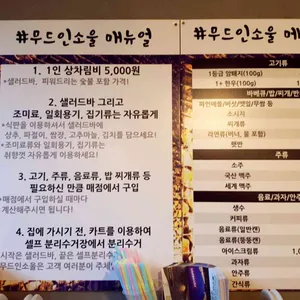 #무드인소울 매뉴얼
1. 1인 상차림비 5,000원
*샐러드바, 피워드리는 숯불 포함 가격!
2. 샐러드바 그리고
조미료, 일회용기, 집기류는 자유롭게
*식판을 이용하셔서 샐러드바에
상추, 파절이, 쌈장, 고추마늘, 김치를 담으세요!
*조미료류와 일회용기, 집기류는
취향껏 자유롭게 이용하세요!
3. 고기, 주류, 음료류, 밥 찌개류 등
필요하신 만큼 매점에서 구입
*매점에서 구입하실 때마다
계산해주시면 된답니다!
4. 집에 가시기 전, 카트를 이용하여
셀프 분리수거장에서 분리수거
시작은 샐러드바, 끝은 셀프분리수거
무드인소울은 고객 여러분이 주체!
#무드인소울 메
고기류
1등급 암돼지(100g)
1+ 한우(100g)
바베큐/밥/찌개/반
파인애플/버섯/깻잎/무쌈 등
소시지
찌개류
라면류(버너, 물 포함)
햇반
주류
소주
국산 맥주
세계 맥주
음료/과자/안주
생수
커피류
음료류(일반캔)
음료류(뚱뚱캔)
아이스크림류
과자류
안주류
간식류